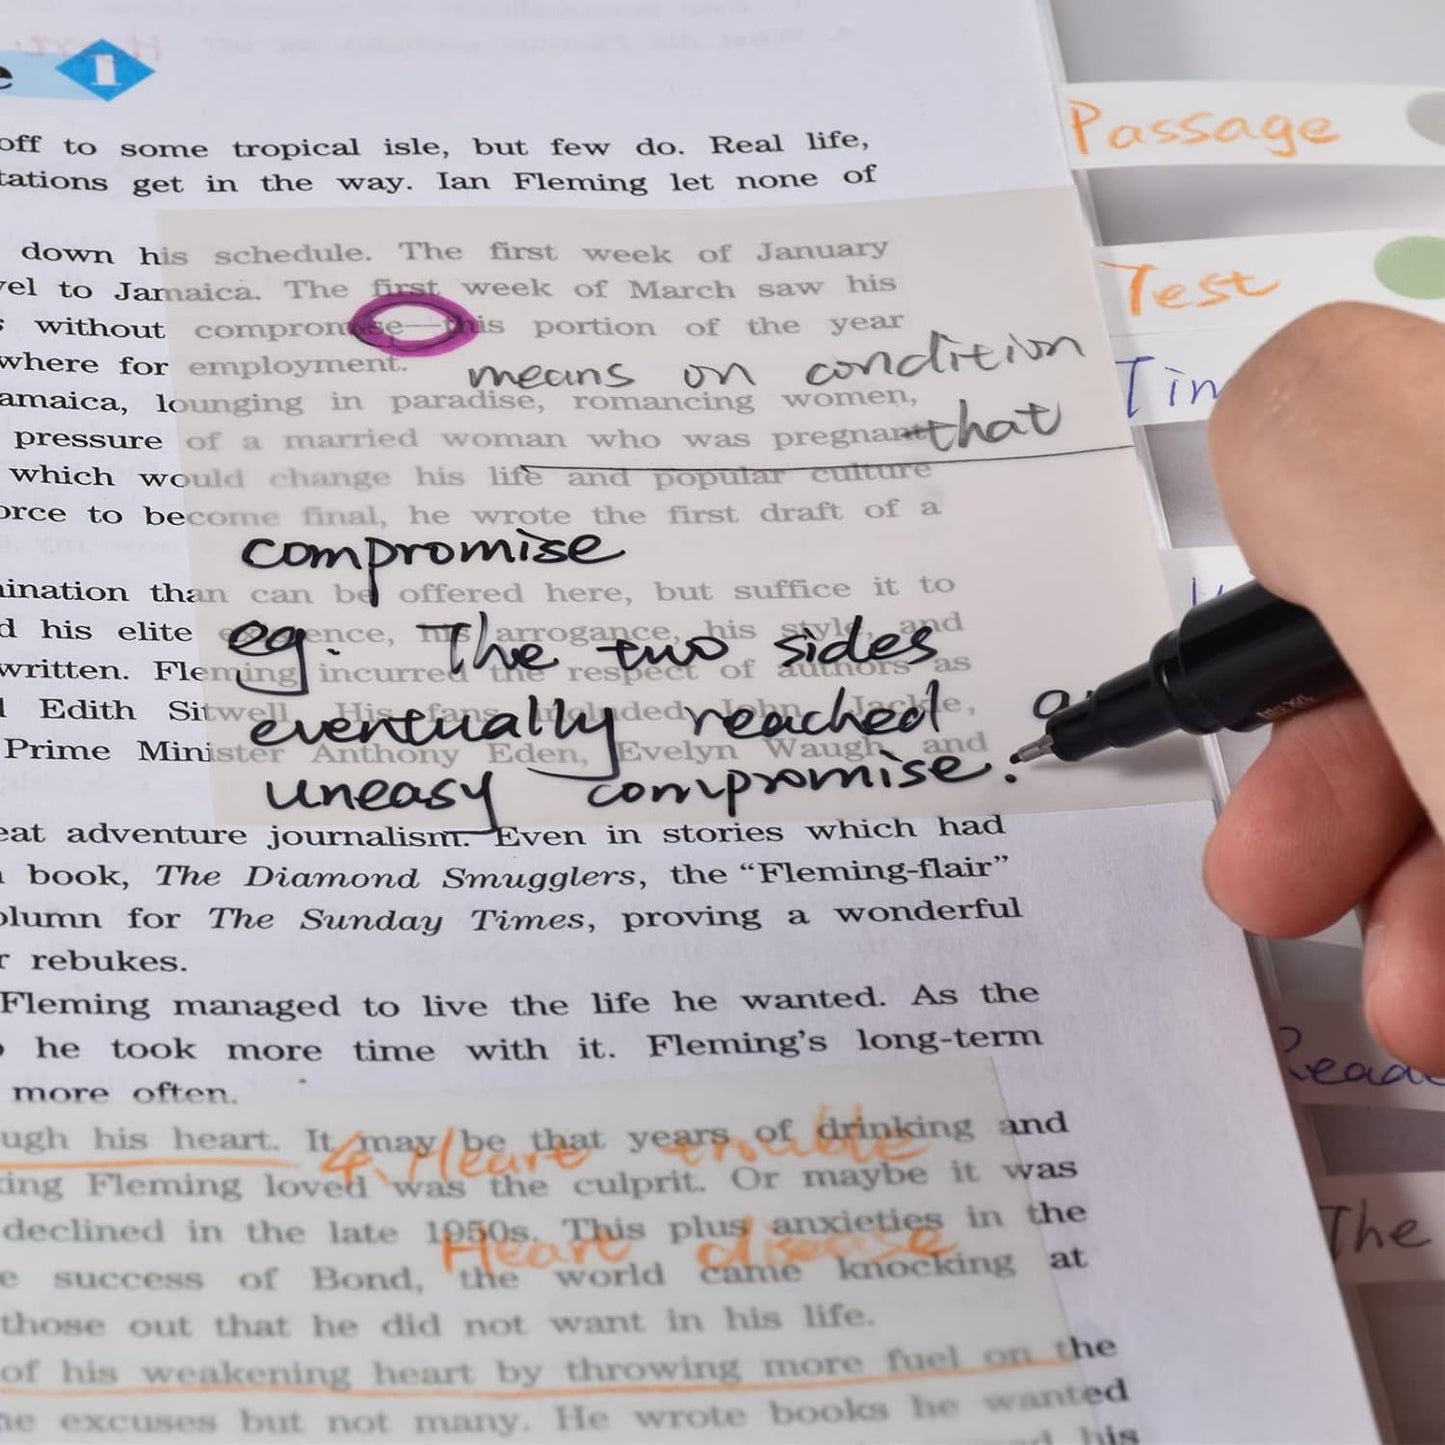 1
off to some tropical isle, but few do. Real life,
tations get in the way. Ian Fleming let none of
down his schedule. The first week of January
vel to Jamaica. The first week of March saw his
s without compromise—this portion of the year
where for employment.
means on condition
amaica, lounging in paradise, romancing women,
pressure of a married woman who was pregnant
that
which would change his life and popular culture
orce to become final, he wrote the first draft of a
compromise
ination than can be offered here, but suffice it to
d his elite his arrogance, his style, and
eg: The two sides
written. Fleming incurred the respect of authors as
Edith Sitwell. His fans included John Jackle,
eventually reached a
Prime Minister Anthony Eden, Evelyn Waugh, and
uneasy compromise.
eat adventure journalism. Even in stories which had
book, The Diamond Smugglers, the “Fleming-flair”
olumn for The Sunday Times, proving a wonderful
r rebukes.
Fleming managed to live the life he wanted. As the
he took more time with it. Fleming's long-term
more often.
ugh his heart. It may be that years of drinking and
4. Heart trouble
king Fleming loved was the culprit. Or maybe it was
declined in the late 1950s. This plus anxieties in the
Heart disease
e success of Bond, the world came knocking at
those out that he did not want in his life.
of his weakening heart by throwing more fuel on the
he excuses but not many. He wrote books he wanted
his
Passage
Test
Tim
Read
The